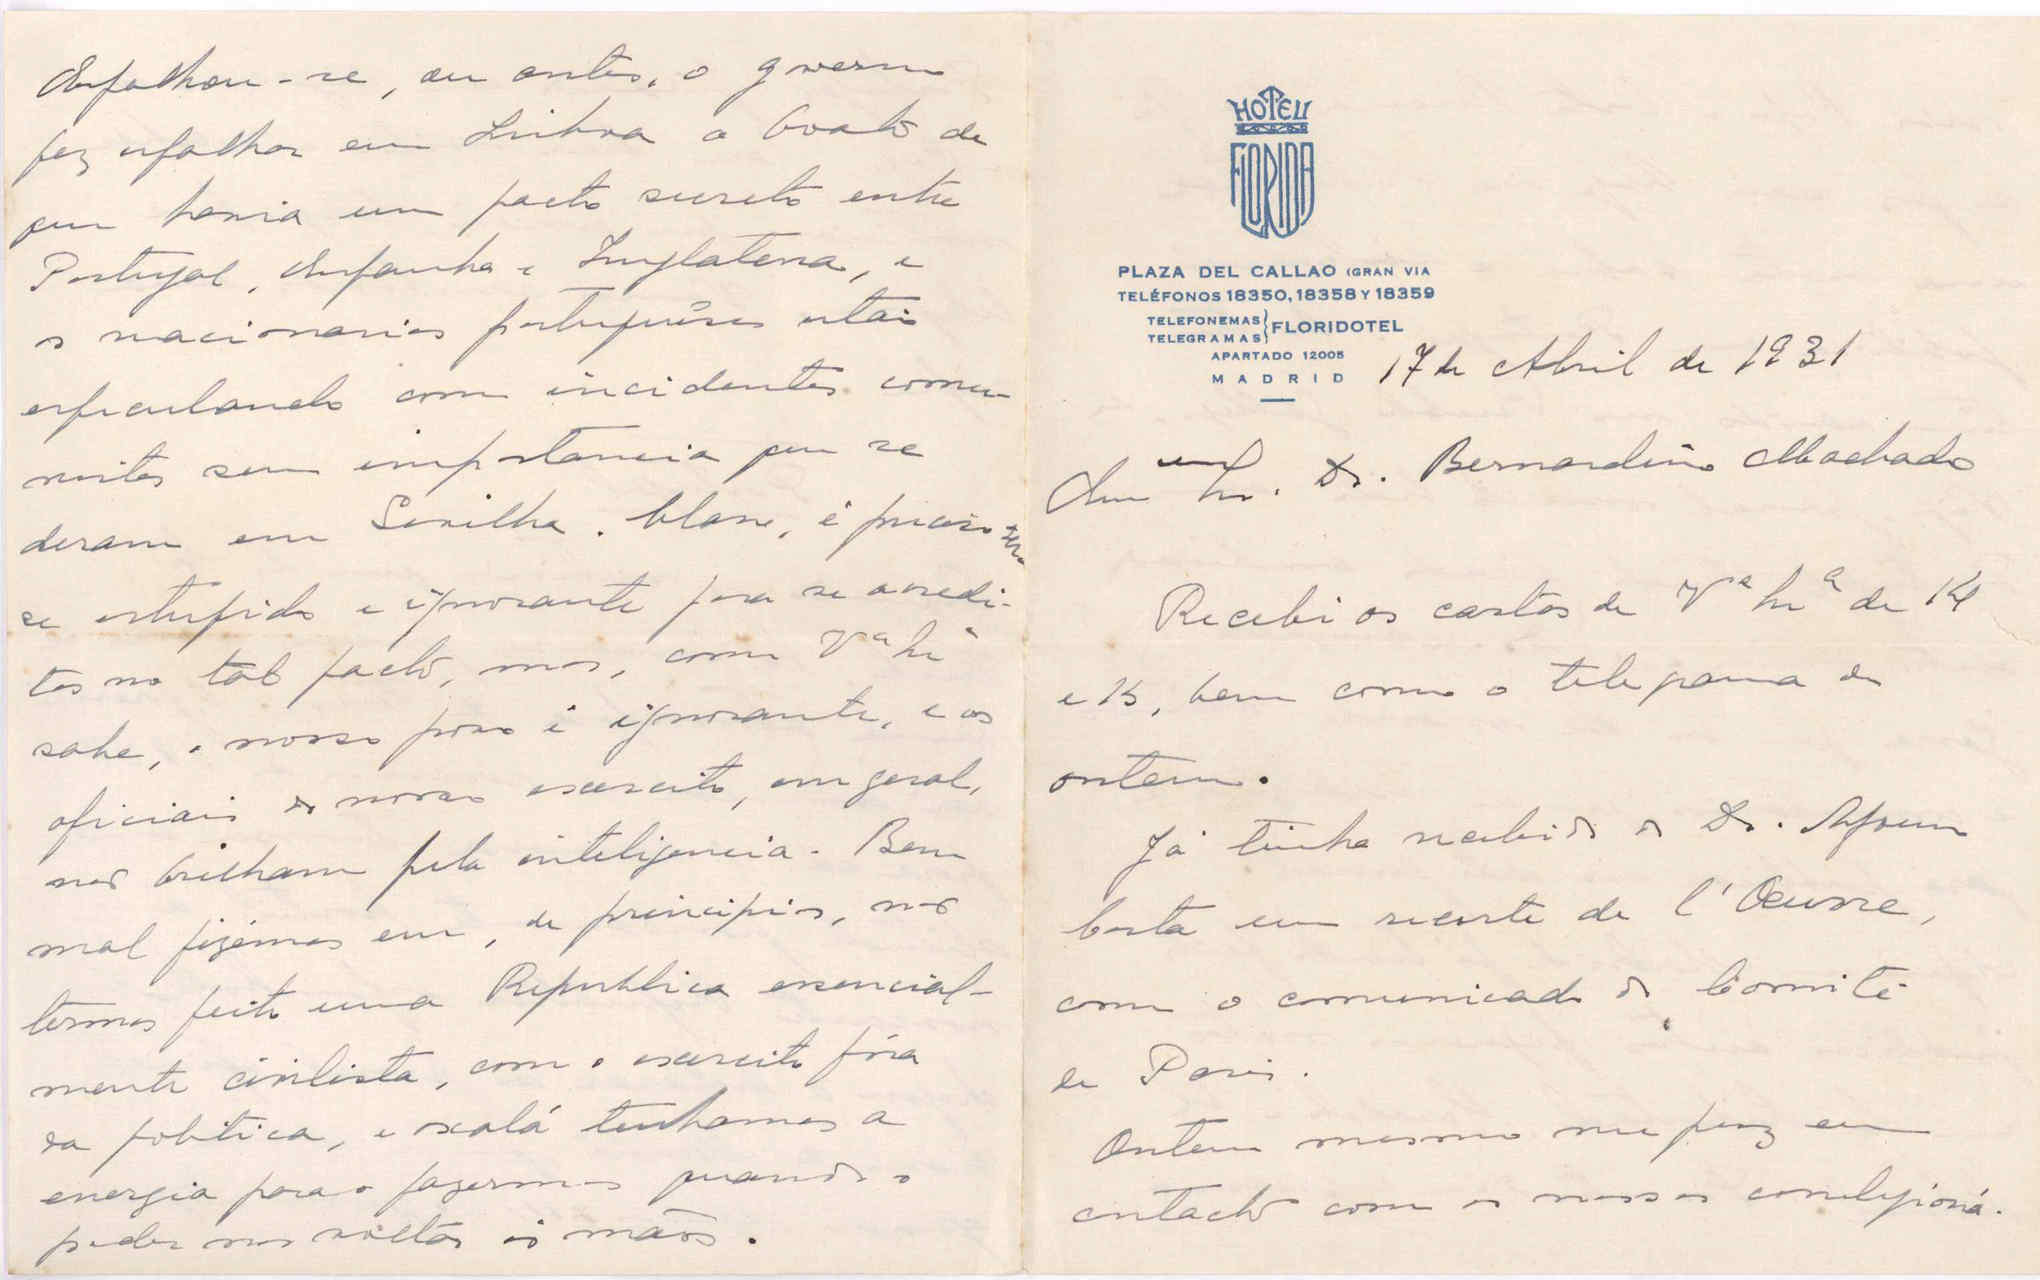 Espalhou-se, ou antes, o governo
fez espalhar em Lisboa o boato de
que havia um pacto secreto entre
Portugal, Espanha e Inglaterra, e
os reacionarios portuguêses estão
especulando com incidentes comu-
nistas sem importancia que se
deram em Sevilha. Claro, é preciso ser-
se estupido e ignorante para se acredi-
tar no tal pacto, mas, como Vª Exª
sabe, o nosso povo é ignorante, e os
oficiais do nosso exercito, em geral,
não brilham pela inteligencia. Bem
mal fizémos em, de principio, não
termos feito uma Republica essencial-
mente civilista, com o exercito fóra
da politica, e oxalá tenhamos a
energia para o fazermos quando o
poder nos voltar ás mãos.
HOTEL
FLORIDA
PLAZA DEL CALLAO (GRAN VIA
TELÉFONOS 18350, 18358 Y 18359
TELEFONEMAS
TELEGRAMAS
FLORIDOTEL
APARTADO 12005
MADRID
17 de Abril de 1931
Exmo Sr. Dr. Bernardino Machado
Recebi as cartas de Vª Exª de 14
e 15, bem como o telegrama de
ontem.
Já tinha recebido do Dr. Afonso
Costa um recorte de l'Oeuvre,
com o comunicado do Comité
de Paris.
Ontem mesmo me puz em
contacto com os nossos correligioná-